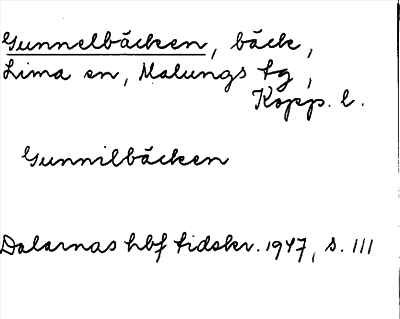 Gunnelbäcken, bäck,
Lima sn, Malungs tg,
Kopp. l.
Gunnilbäcken
Dalarnas hbf tidskr. 1947, s. 111